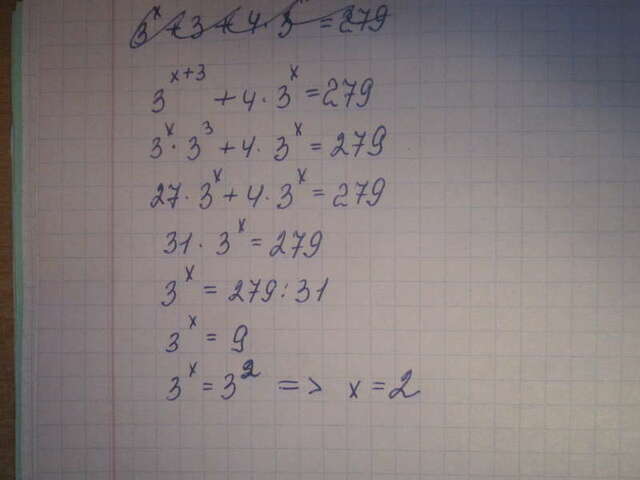 3^x + 3 + 4 · 3^x = 279
3^{x+3} + 4 · 3^x = 279
3^x · 3^3 + 4 · 3^x = 279
27 · 3^x + 4 · 3^x = 279
31 · 3^x = 279
3^x = 279 : 31
3^x = 9
3^x = 3^2 => x = 2